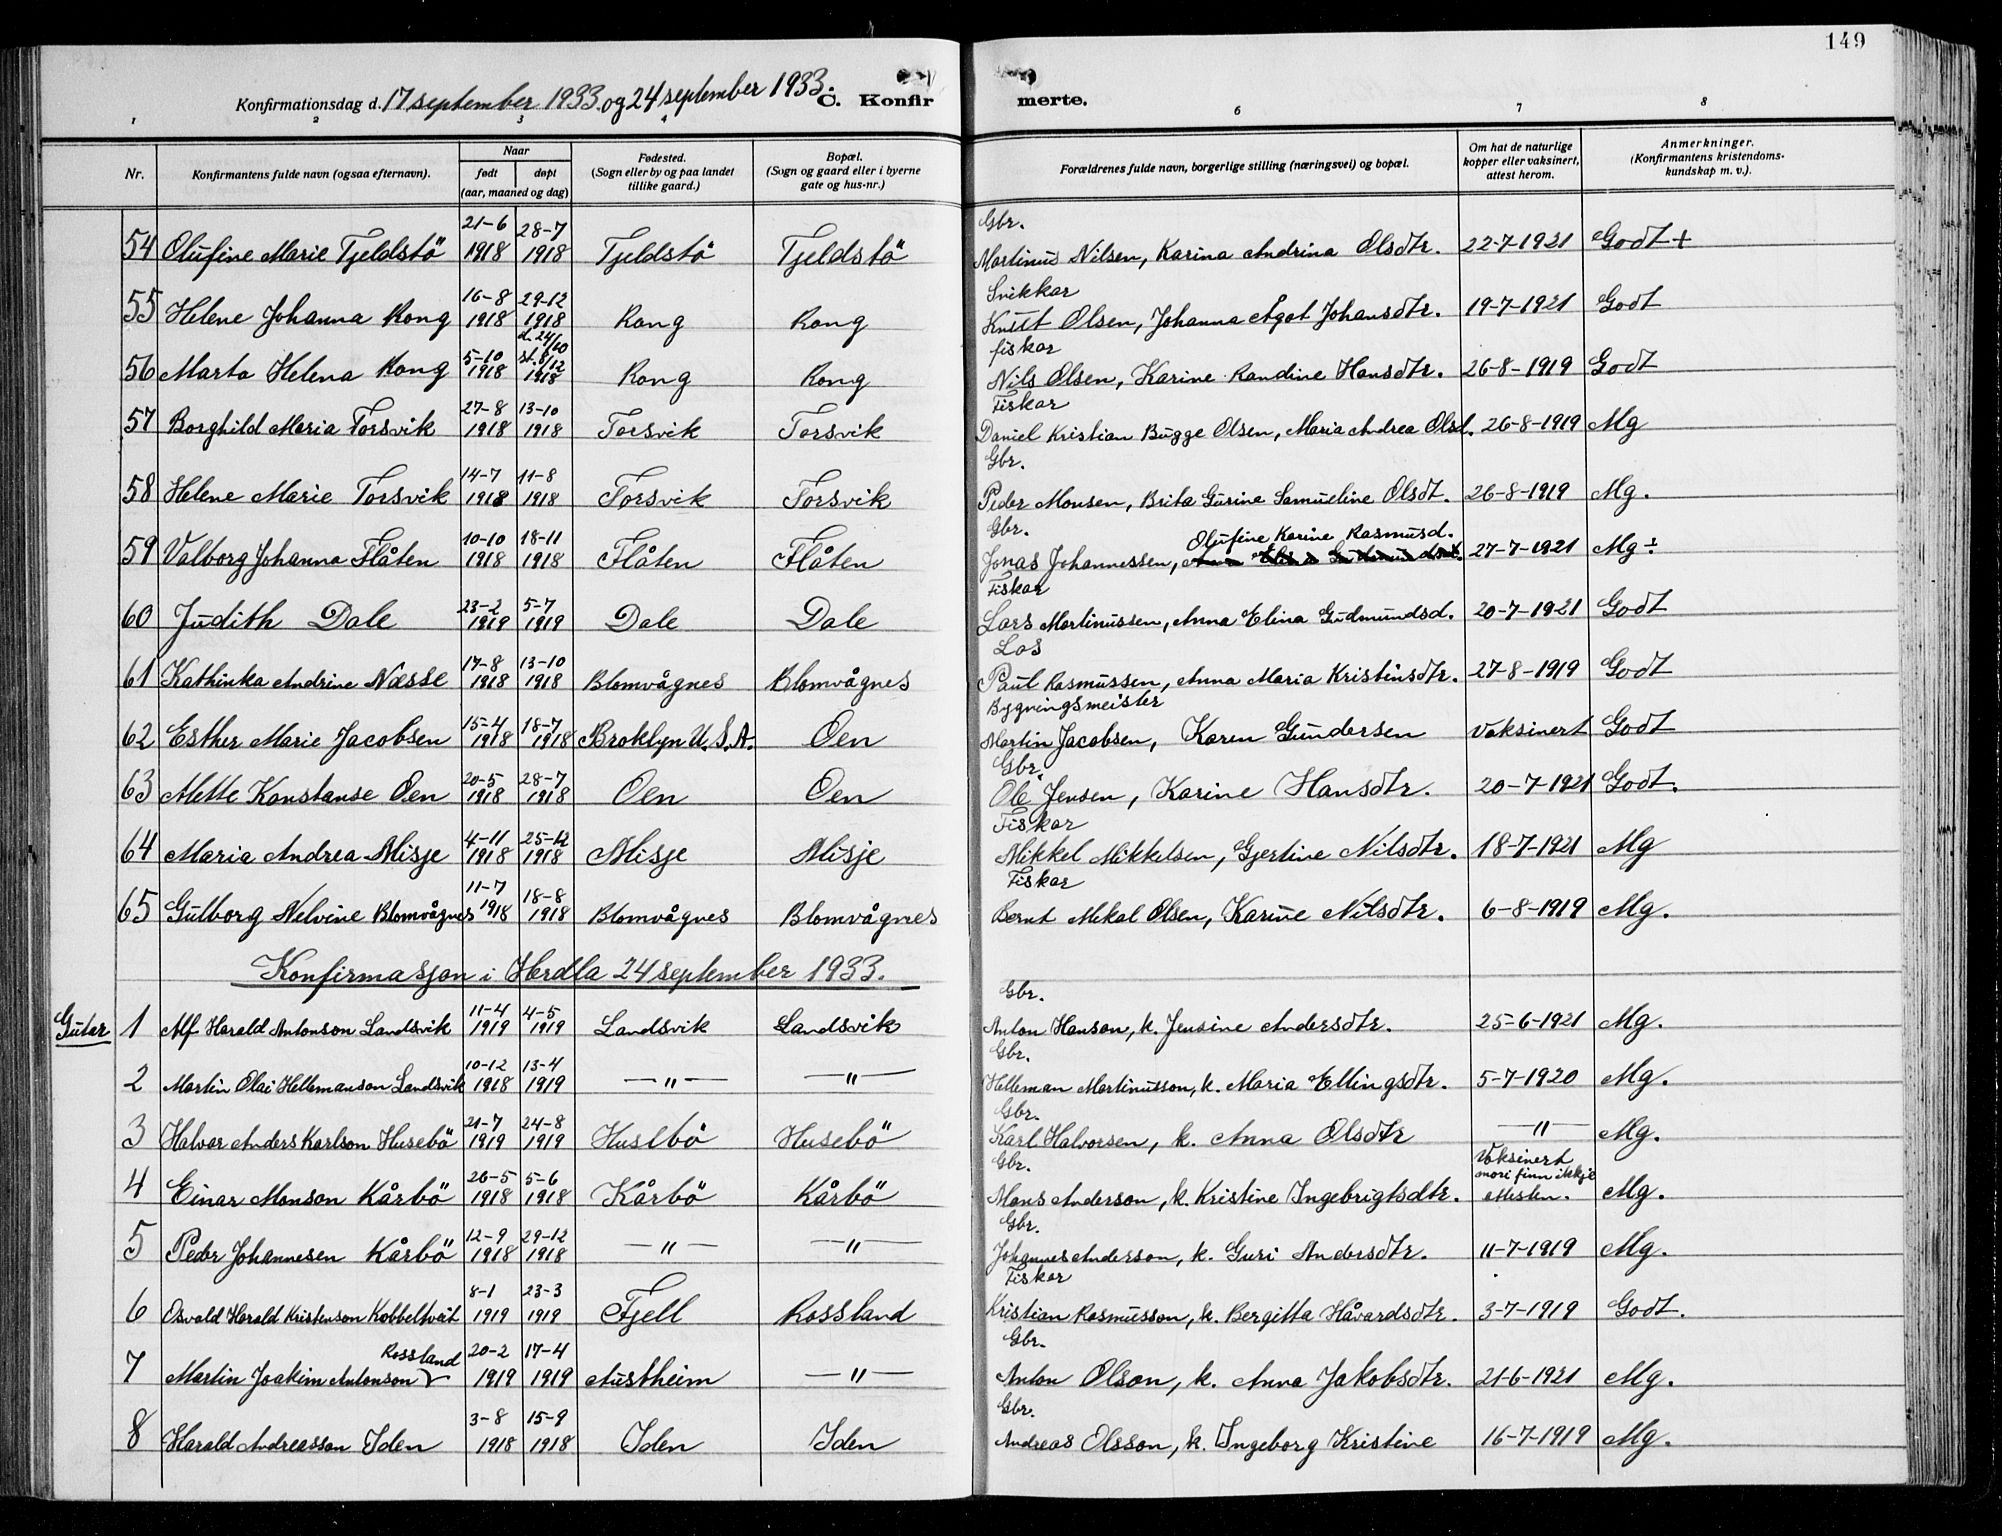 149
Konfirmationsdag d. 17 september 1933. og 24 september 1933. C. Konfirmerte.
1 2 3 4 6 7 8
Nr. | Konfirmantens fulde navn (ogsaa efternavn). | Naar født døpt (aar, maaned og dag) | Fødested. (Sogn eller by og paa landet tillike gaard.) | Bopæl. (Sogn og gaard eller i byerne gate og hus-nr.) | Forældrenes fulde navn, borgerlige stilling (næringsvei) og bopæl. | Om hat de naturlige kopper eller vaksinert, attest herom. | Anmerkninger. (Konfirmantens kristendoms-kundskap m. v.).
54 Olufine Marie Tjeldstö 21-6 1918 28-7 1918 Tjeldstö Tjeldstö Gbr. Martinus Nilsen, Karina Andrina Olsdtr. 22-7-1921 Godt +
55 Helene Johanna Rong 16-8 1918 29-12 1918 Rong Rong Snikkar Knut Olsen, Johanna Ågot Johansdtr. 19-7-1921 Godt
56 Marta Helena Rong 5-10 1918 d. 24/10 st. 8/12 1918 Rong Rong fiskar Nils Olsen, Karine Randine Hansdtr. 26-8-1919 Godt
57 Borghild Maria Torsvik 27-8 1918 13-10 1918 Torsvik Torsvik Fiskar Daniel Kristian Bugge Olsen, Maria Andrea Olsd. 26-8-1919 Mg
58 Helene Marie Torsvik 14-7 1918 11-8 1918 Torsvik Torsvik Gbr. Peder Monsen, Brita Gurine Samueline Olsdt. 26-8-1919 Mg.
59 Valborg Johanna Flåten 10-10 1918 18-11 1918 Flåten Flåten Gbr. Jonas Johannessen, Olufine Karine Rasmusd. 27-7-1921 Mg÷
60 Judith Dale 23-2 1919 5-7 1919 Dale Dale Fiskar Lars Martinussen, Anna Elina Gudmundsd. 20-7-1921 Godt
61 Kathinka Andrine Næsse 17-8 1918 13-10 1918 Blomvågnes Blomvågnes Los Paul Rasmussen, Anna Maria Kristinsdtr. 27-8-1919 Godt
62 Esther Marie Jacobsen 15-4 1918 18-7 1918 Broklyn U.S.A. Oen Bygningsmeister Martin Jacobsen, Karen Gundersen Vaksinert Godt
63 Mette Konstanse Oen 20-5 1918 28-7 1918 Oen Oen Gbr. Ole Jensen, Karine Hansdtr. 20-7-1921 Godt.
64 Maria Andrea Misje 4-11 1918 25-12 1918 Misje Misje Fiskar Mikkel Mikkelsen, Gjertine Nilsdtr. 18-7-1921 Mg
65 Gulborg Nelvine Blomvågnes 11-7 1918 18-8 1918 Blomvågnes Blomvågnes Fiskar Bernt Mikal Olsen, Karine Nilsdtr. 6-8-1919 Mg.
Konfirmasjon i Herdla 24 september 1933.
Gutar 1 Alf Harald Antonson Landsvik 11-4 1919 4-5 1919 Landsvik Landsvik Gbr. Anton Hanson, k. Jensine Andersdtr. 25-6-1921 Mg.
2 Martin Olai Hellemanson Landsvik 10-12 1918 13-4 1919 —"— —"— Gbr. Helleman Martinusson, k. Maria Ellingsdtr. 5-7-1920 Mg.
3 Halvar Anders Karlson Husebö 21-7 1919 24-8 1919 Husebö Husebö Gbr. Karl Halvorsen, k. Anna Olsdtr —"— Mg.
4 Einar Monson Kårbö 26-5 1918 5-6 1918 Kårbö Kårbö Gbr. Mons Anderson, k. Kristine Ingebrigtsdtr. Vaksinert mori finn ikkje Attesten. Mg.
5 Peder Johannesen Kårbö 12-9 1918 29-12 1918 —"— —"— Gbr. Johannes Anderson, k. Guri Andersdtr. 11-7-1919 Mg.
6 Osvald Harald Kristenson Kobbeltvät 8-1 1919 23-3 1919 Fjell Rossland Fiskar Kristian Rasmusson, k. Bergitta Håvardsdtr. 3-7-1919 Godt.
7 Martin Joakim Antonson Rossland 20-2 1919 17-4 1919 Austheim —"— Gbr. Anton Olson, k. Anna Jakobsdtr. 21-6-1921 Mg.
8 Harald Andreasson Iden 3-8 1918 15-9 1918 Iden Iden Gbr. Andreas Olsson, k. Ingeborg Kristine 16-7-1919 Mg.